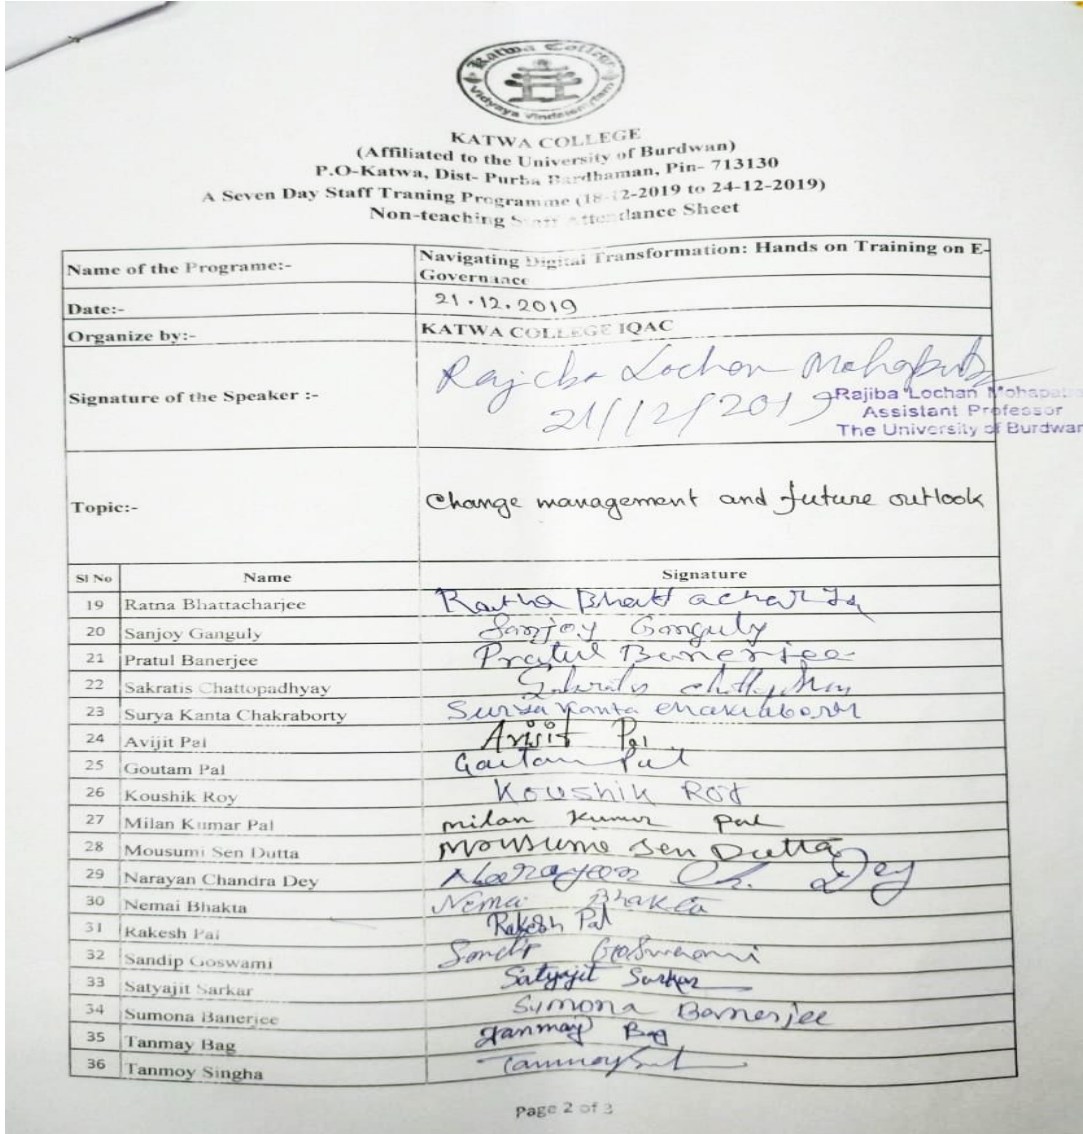 Katwa College
Vidyaya Vindatehmytam
KATWA COLLEGE
(Affiliated to the University of Burdwan)
P.O-Katwa, Dist- Purba Bardhaman, Pin- 713130
A Seven Day Staff Traning Programme (18-12-2019 to 24-12-2019)
Non-teaching Staff Attendance Sheet
Name of the Programe:- Navigating Digital Transformation: Hands on Training on E-
Governance
Date:- 21.12.2019
Organize by:- KATWA COLLEGE IQAC
Signature of the Speaker :- Rajiba Lochan Mohapatra
21/12/2019
Rajiba Lochan Mohapatra
Assistant Professor
The University of Burdwan
Topic:- Change management and future outlook
Sl No Name Signature
19 Ratna Bhattacharjee Ratna Bhattacharjee
20 Sanjoy Ganguly Sanjoy Ganguly
21 Pratul Banerjee Pratul Banerjee
22 Sakratis Chattopadhyay
23 Surya Kanta Chakraborty Surya Kanta Chakraborty
24 Avijit Pal Avijit Pal
25 Goutam Pal Goutam Pal
26 Koushik Roy Koushik Roy
27 Milan Kumar Pal milan Kumar Pal
28 Mousumi Sen Dutta Mousumi Sen Dutta
29 Narayan Chandra Dey Narayan Ch. Dey
30 Nemai Bhakta Nemai Bhakta
31 Rakesh Pal Rakesh Pal
32 Sandip Goswami Sandip Goswami
33 Satyajit Sarkar Satyajit Sarkar
34 Sumona Banerjee Sumona Banerjee
35 Tanmay Bag Tanmay Bag
36 Tanmoy Singha Tanmoy
Page 2 of 3